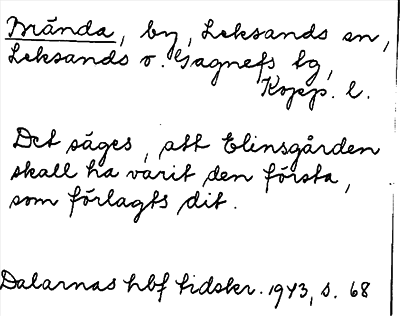 Brända, by, Leksands sn,
Leksands o. Gagnefs tg,
Kopp. l.
Det säges, att Elinsgården
skall ha varit den första,
som förlagts dit.
Dalarnas hbf tidskr. 1943, s. 68